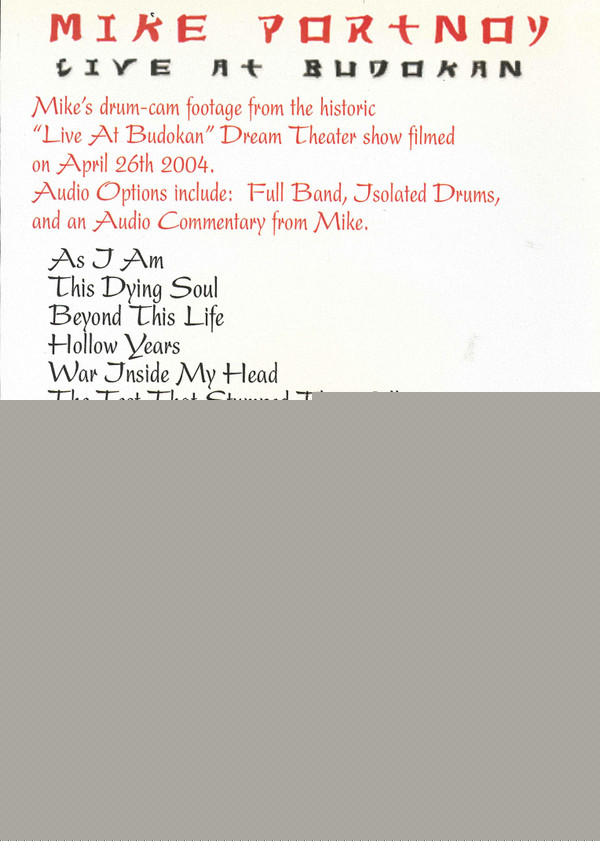 MIKE PORTNOY
LIVE AT BUDOKAN
Mike's drum-cam footage from the historic
"Live At Budokan" Dream Theater show filmed
on April 26th 2004.
Audio Options include: Full Band, Isolated Drums,
and an Audio Commentary from Mike.
As I Am
This Dying Soul
Beyond This Life
Hollow Years
War Inside My Head
The Test That Stumped